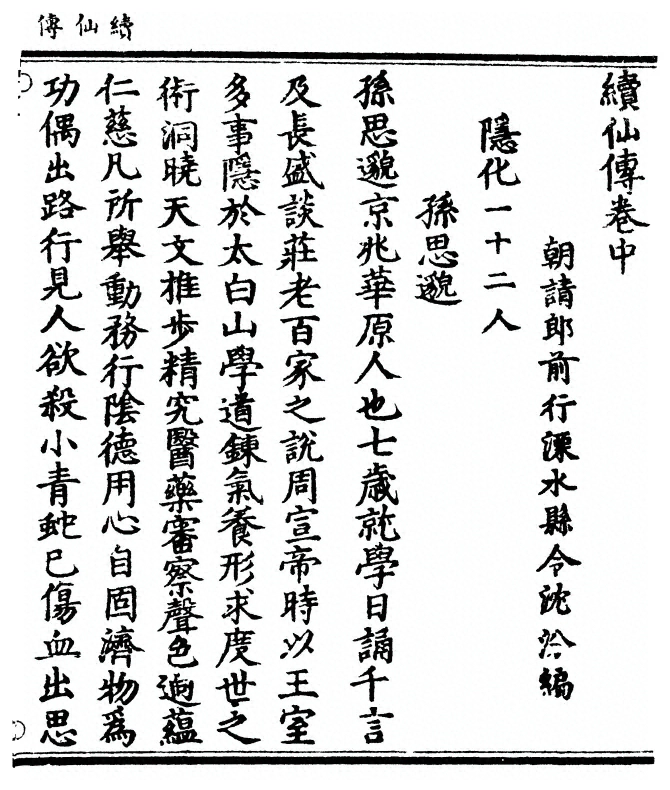 續仙傳
續仙傳卷中
朝請郎前行溧水縣令沈汾編
隱化一十二人
孫思邈
孫思邈京兆華原人也七歲就學日誦千言
及長盛談莊老百家之說周宣帝時以王室
多事隱於太白山學道鍊氣養形求度世之
術洞曉天文推步精究醫藥審察聲色迥蘊
仁慈凡所舉動務行陰德用心自固濟物爲
功偶出路行見人欲殺小青蛇已傷血出思